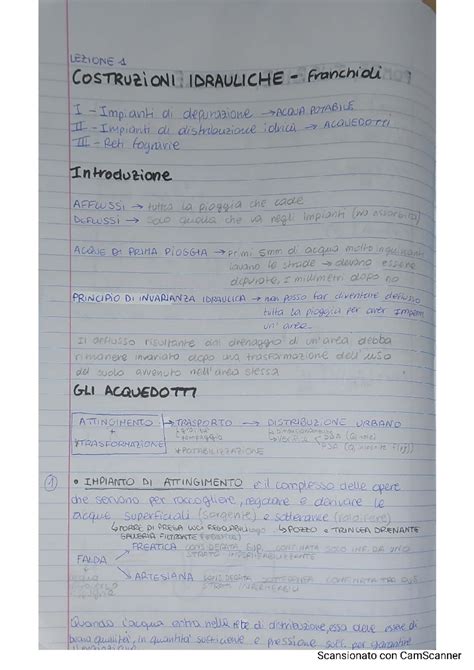 LEZIONE 1
COSTRUZIONI IDRAULICHE - Franchioli
I - Impianti di depurazione → ACQUA POTABILE
II - Impianti di distribuzione idrica → ACQUEDOTTI
III - Reti fognarie
Introduzione
AFFLUSSI → tutta la pioggia che cade
DEFLUSSI → solo quella che va negli impianti (no assorbita)
ACQUE DI PRIMA PIOGGIA → primi 5mm di acqua molto inquinanti
lavano le strade → devono essere
depurate, i millimetri dopo no
PRINCIPIO DI INVARIANZA IDRAULICA → non posso far diventare deflusso
tutta la pioggia per aver
un'area
Il deflusso risultante dal drenaggio di un'area debba
rimanere invariato dopo una trasformazione dell'uso
del suolo avvenuto nell'area stessa
GLI ACQUEDOTTI
ATTINGIMENTO → TRASPORTO → DISTRIBUZIONE URBANO
+
TRASFORMAZIONE
POTABILIZZAZIONE
1 • IMPIANTO DI ATTINGIMENTO è il complesso delle opere
che servono per raccogliere, regolare e derivare le
acque superficiali (sorgente) e sotterranee
↳ TORRE DI PRESA ↳ POZZO o TRINCEA DRENANTE
GALLERIA FILTRANTE
FREATICA CONSIDERATA SUP. CONFINATA SOLO INF. DA UNO
STRATO IMPERMEABILIZZANTE
FALDA
ARTESIANA CONSIDERATA SOTTERRANEA CONFINATA TRA DUE
STRATI IMPERMEABILI
Quando l'acqua entra nella rete di distribuzione, essa deve essere di
buona qualità, in quantità sufficiente e pressione suff. per garantire
Scansionato con CamScanner